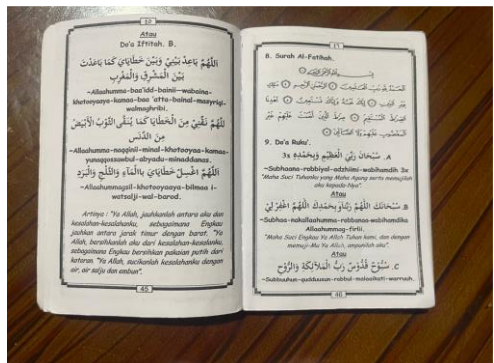 Atau
Do'a Iftitah. B.
اَللّٰهُمَّ بَاعِدْ بَيْنِيْ وَبَيْنَ خَطَايَايَ كَمَا بَاعَدْتَ
بَيْنَ الْمَشْرِقِ وَالْمَغْرِبِ
~Allaahumma-baa'idd-bainii-wabaina-
khotooyaaya-kamaa-baa'atta-bainal-masyriqi-
walmaghribi.
اَللّٰهُمَّ نَقِّنِيْ مِنَ الْخَطَايَا كَمَا يُنَقَّى الثَّوْبُ الْأَبْيَضُ
مِنَ الدَّنَسِ
~Allaahumma-naqqinii-minal-khotooyaa-kamaa-
yunaqqossawbul-abyadu-minaddanas.
اَللّٰهُمَّ اغْسِلْ خَطَايَايَ بِالْمَآءِ وَالثَّلْجِ وَالْبَرَدِ
~Allaahummagsil-khotooyaaya-bilmaa i-
watsalji-wal-barod.
Artinya : "Ya Allah, jauhkanlah antara aku dan
kesalahan-kesalahanku, sebagaimana Engkau
jauhkan antara jarak timur dengan barat. "Ya
Allah, bersihkanlah aku dari kesalahan-kesalahanku,
sebagaimana Engkau bersihkan pakaian putih dari
kotoran. "Ya Allah, sucikanlah kesalahanku dengan
air, air salju dan embun".
45
8. Surah Al-Fatihah.
9. Do'a Ruku'.
A. سُبْحَانَ رَبِّيَ الْعَظِيْمِ وَبِحَمْدِهِ 3x
~Subhaana-robbiyal-adzhiimi-wabihamdih 3x
"Maha Suci Tuhanku yang Maha Agung serta memujilah
aku kepada-Nya".
Atau
B. سُبْحَانَكَ اللّٰهُمَّ رَبَّنَا وَبِحَمْدِكَ اللّٰهُمَّ اغْفِرْ لِيْ
~Subhaa-nakallaahumma-robbanaa-wabihamdika
Allaahummag-firlii.
"Maha Suci Engkau Ya Allah Tuhan kami, dan dengan
memuji-Mu Ya Allah, ampunilah aku".
Atau
C. سُبُّوْحٌ قُدُّوْسٌ رَبُّ الْمَلَآئِكَةِ وَالرُّوْحِ
~Subbuuhun-qudduusun-robbul-malaaikati-warruuh.
46